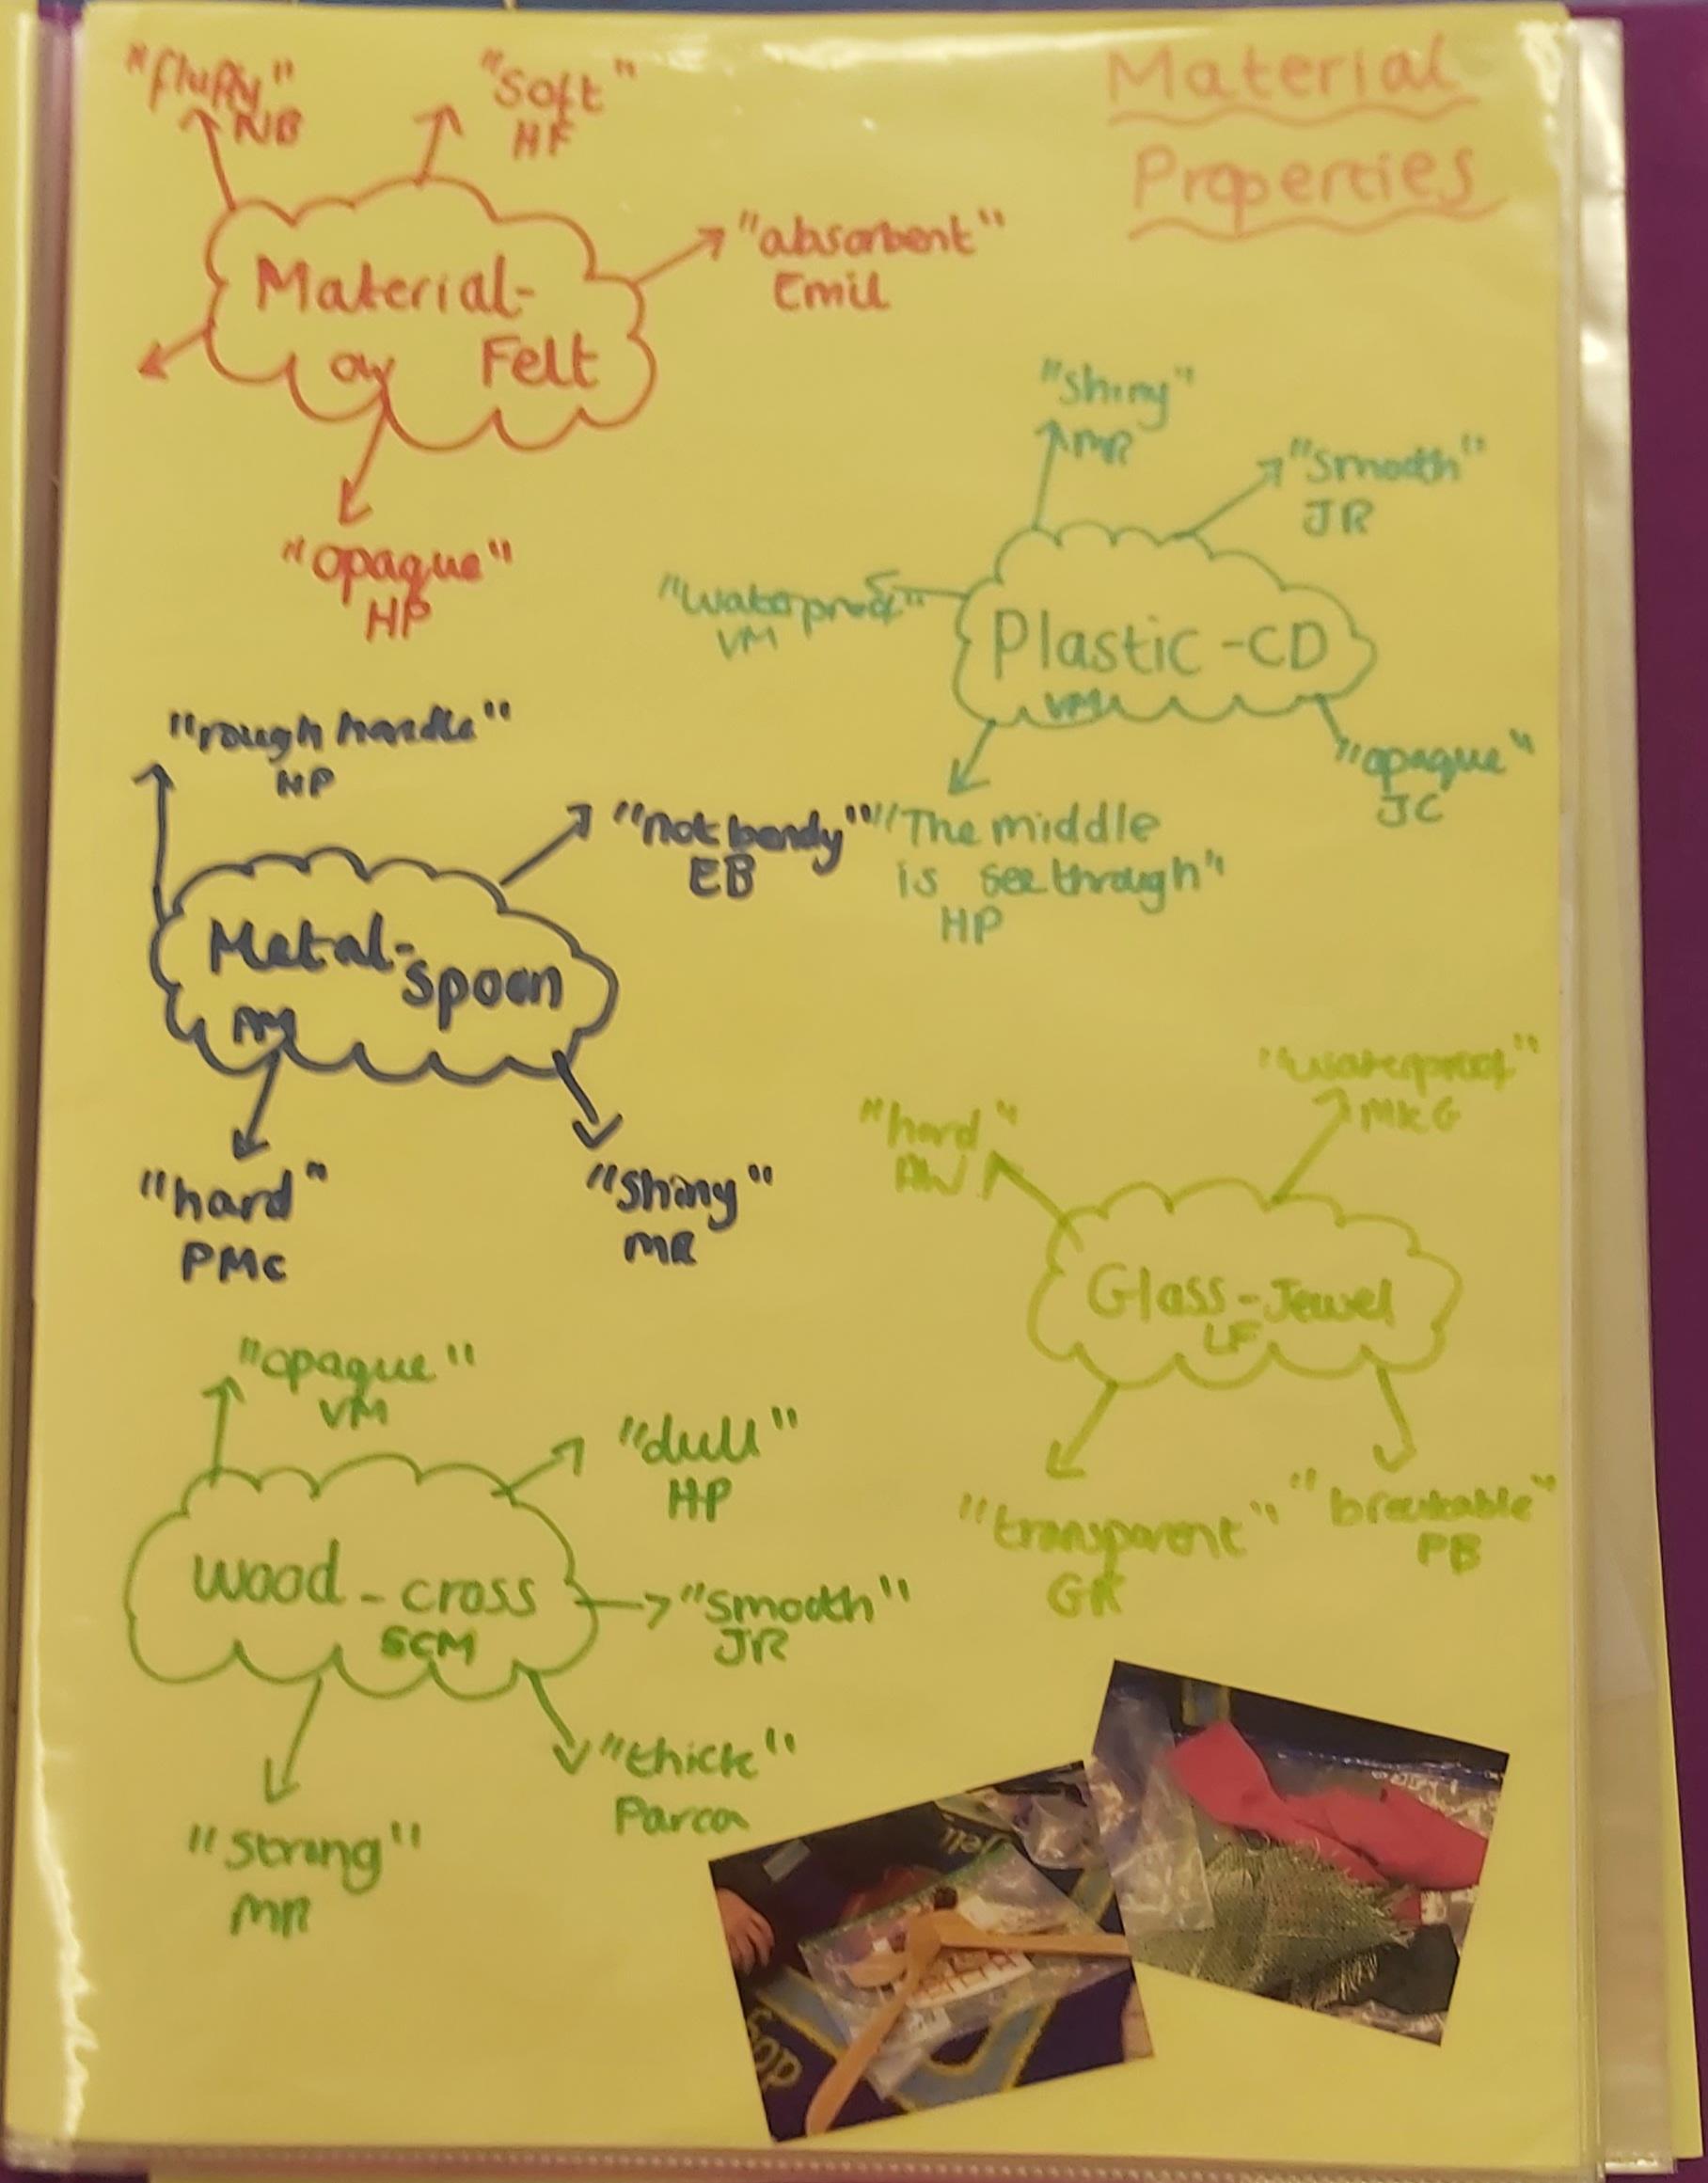 Material
Properties
"fluffy"
NB
"Soft"
HF
"absorbent"
Emil
Material-
Felt
"opaque"
HP
"Shiny"
MR
"Smooth"
JR
"Waterproof"
VM
Plastic-CD
VM
"opaque"
JC
"The middle
is see through"
HP
"rough handle"
HP
"not bendy"
EB
Metal-
Spoon
"hard"
PMc
"Shiny"
MR
"waterproof"
MKG
"hard"
AW
Glass-Jewel
LF
"transparent"
GK
"breakable"
PB
"opaque"
VM
"dull"
HP
Wood-cross
SCM
"Smooth"
JR
"thick"
"Strong"
MR